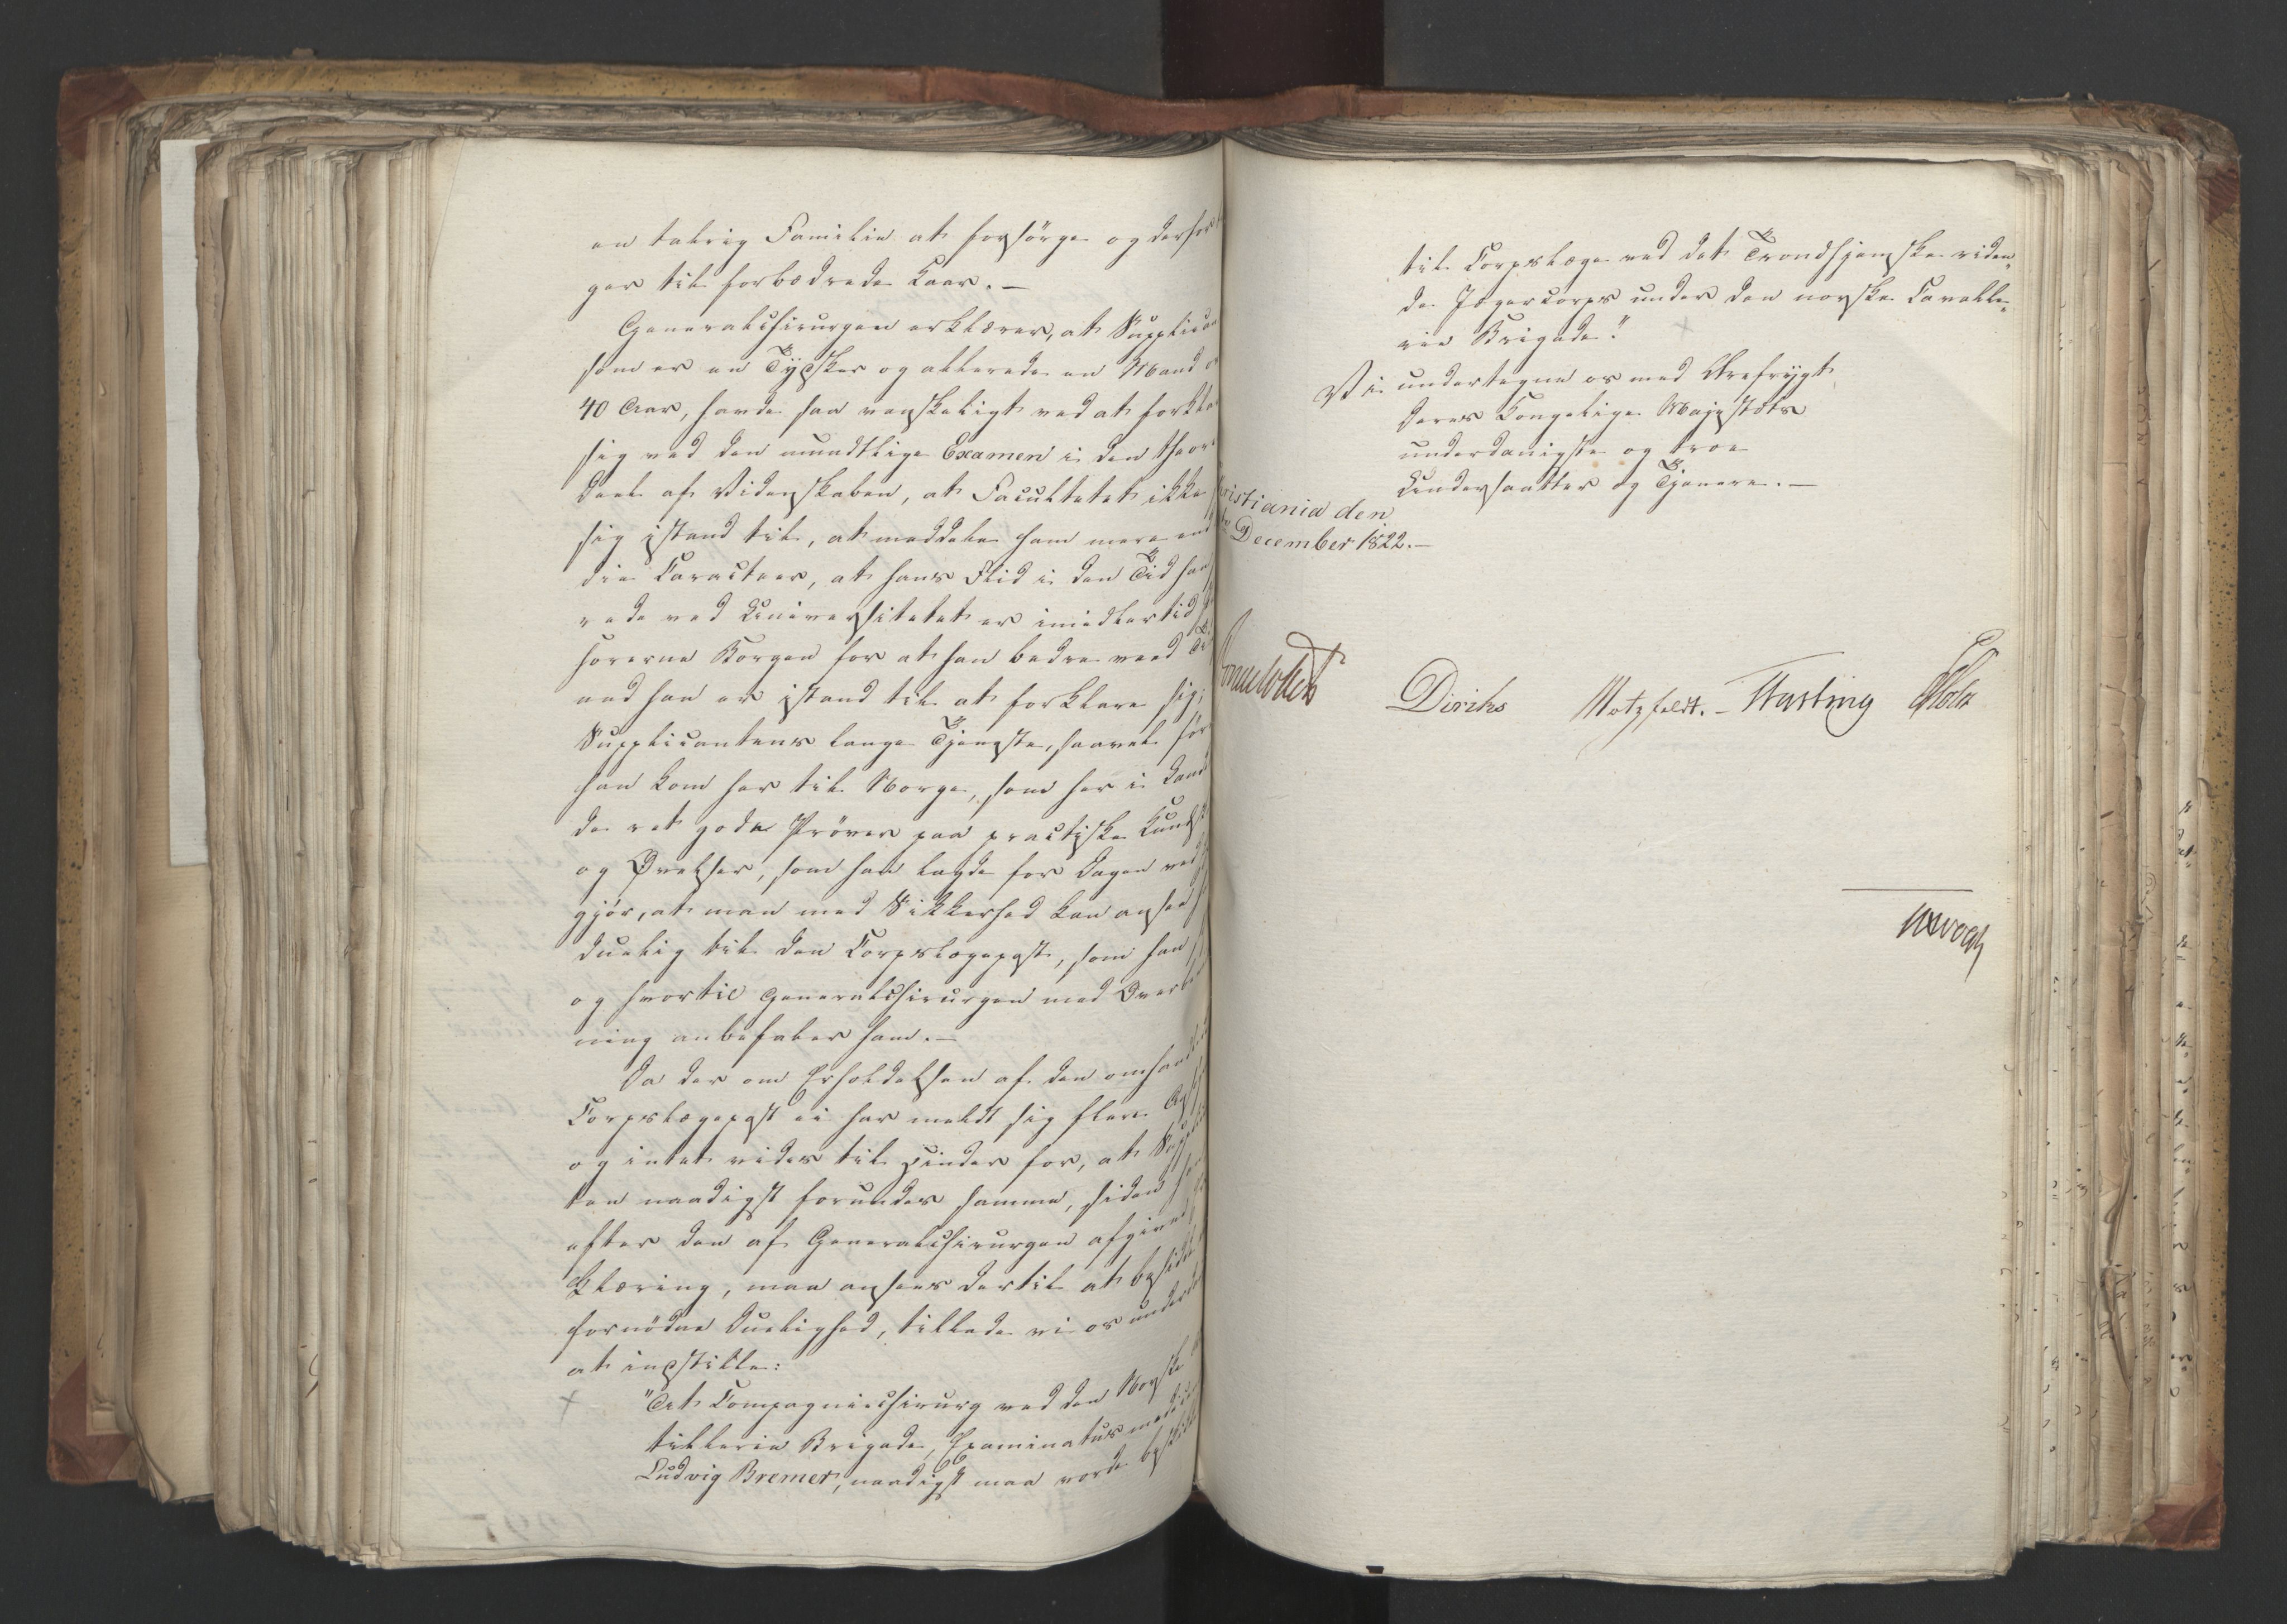 en talrig Familie at forsörge og derfor
ger til forbedrede Kaar. —
Generalchirurgen erklærer, at Supplican
som er en Tydsker og allerede en Mand o
40 Aar, havde saa vanskeligt ved at forkla
sig ved den mundtlige Examen i den theor
Deel af Videnskaben, at Facultetet ikke
sig istand til, at meddele ham mere end
die Caracteer, at hans Flid i den Tid han
rede ved Universitetet er imidlertid
hörerne Borgen for at han bedre veed
end han er istand til at forklare sig;
Supplicantens lange Tjeneste, saavel för
han kom her til Norge, som her i Land
de ret gode Pröver paa practiske Kundsk
og Övelser, som han lagde for Dagen ved
gjör, at man med Sikkerhed kan ansee
duelig til den Corpslægepost, som han
og hvortil Generalchirurgen med Overb
ning anbefaler ham. —
Da der om Erholdelsen af den omhand
Corpslægepost ei har meldt sig flere
og intet vides til Hinder for, at Suppli
ten naadigst forundes samme, siden han
efter den af Generalchirurgen afgivne
klæring, maa ansees dertil at besidde
fornödne Duelighed, tillade vi os underd
at indstille:
"At Compagniechirurg ved den Norske
tillerie Brigade, Examinatus medici
Ludvig Bremer, naadigst maa vorde beskikk
til Corpslæge ved det Trondhjemske riden„
de Jægercorps under den norske Cavalle„
rie Brigade."
Vi undertegne os med Ærefrygt
Deres Kongelige Majestæts
underdanigste og troe
Undersaatter og Tjenere. —
ristiania den
December 1822. —
Diriks Motzfeldt. - Fasting Holst